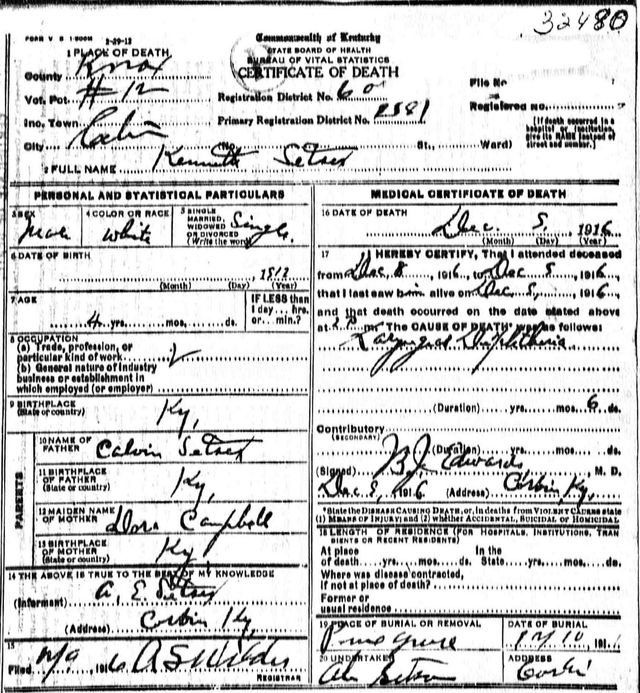 32480
FORM V S 1-500M 3-29-12
Commonwealth of Kentucky
STATE BOARD OF HEALTH
BUREAU OF VITAL STATISTICS
CERTIFICATE OF DEATH
1 PLACE OF DEATH
County Knox
Vot. Pct. #12
Inc. Town Corbin
City
Registration District No.
Primary Registration District No. 2581
File No
Registered no.
(No. St., Ward)
(If death occurred in a hospital or institution, give its NAME instead of street and number.)
2 FULL NAME Kenneth Setser
PERSONAL AND STATISTICAL PARTICULARS
3 SEX Male
4 COLOR OR RACE White
5 SINGLE MARRIED, WIDOWED OR DIVORCED (Write the word) Single
6 DATE OF BIRTH 1912
(Month) (Day) (Year)
7 AGE
4 yrs. mos. ds.
IF LESS than 1 day... hrs. or... min.?
8 OCCUPATION
(a) Trade, profession, or particular kind of work
(b) General nature of industry business or establishment in which employed (or employer)
9 BIRTHPLACE (State or country) Ky,
PARENTS
10 NAME OF FATHER Calvin Setser
11 BIRTHPLACE OF FATHER (State or country) Ky,
12 MAIDEN NAME OF MOTHER Dora Campbell
13 BIRTHPLACE OF MOTHER (State or country) Ky
14 THE ABOVE IS TRUE TO THE BEST OF MY KNOWLEDGE
(Informant) A. E. Setser
(Address) Corbin Ky
15
Filed 1916
REGISTRAR
MEDICAL CERTIFICATE OF DEATH
16 DATE OF DEATH
Dec. 1916
(Month) (Day) (Year)
17 I HEREBY CERTIFY, That I attended deceased
from Dec 8, 1916, to Dec 1916
that I last saw him alive on Dec 1916
and that death occurred on the date stated above
at m. The CAUSE OF DEATH* was as follows:
Laryngeal Diphtheria
(Duration) yrs. mos. 6 ds.
Contributory (SECONDARY)
(Duration) yrs. mos. ds.
(Signed) B J Edwards M. D.
Dec 1916 (Address) Corbin Ky,
*State the DISEASE CAUSING DEATH, or, in deaths from VIOLENT CAUSES state (1) MEANS OF INJURY; and (2) whether ACCIDENTAL, SUICIDAL or HOMICIDAL
18 LENGTH OF RESIDENCE (FOR HOSPITALS, INSTITUTIONS, TRANSIENTS OR RECENT RESIDENTS)
At place of death yrs. mos. ds. In the State yrs. mos. ds.
Where was disease contracted, if not at place of death?
Former or usual residence
19 PLACE OF BURIAL OR REMOVAL
Pine Grove
DATE OF BURIAL
12/10 191
20 UNDERTAKER
Setser
ADDRESS
Corbin